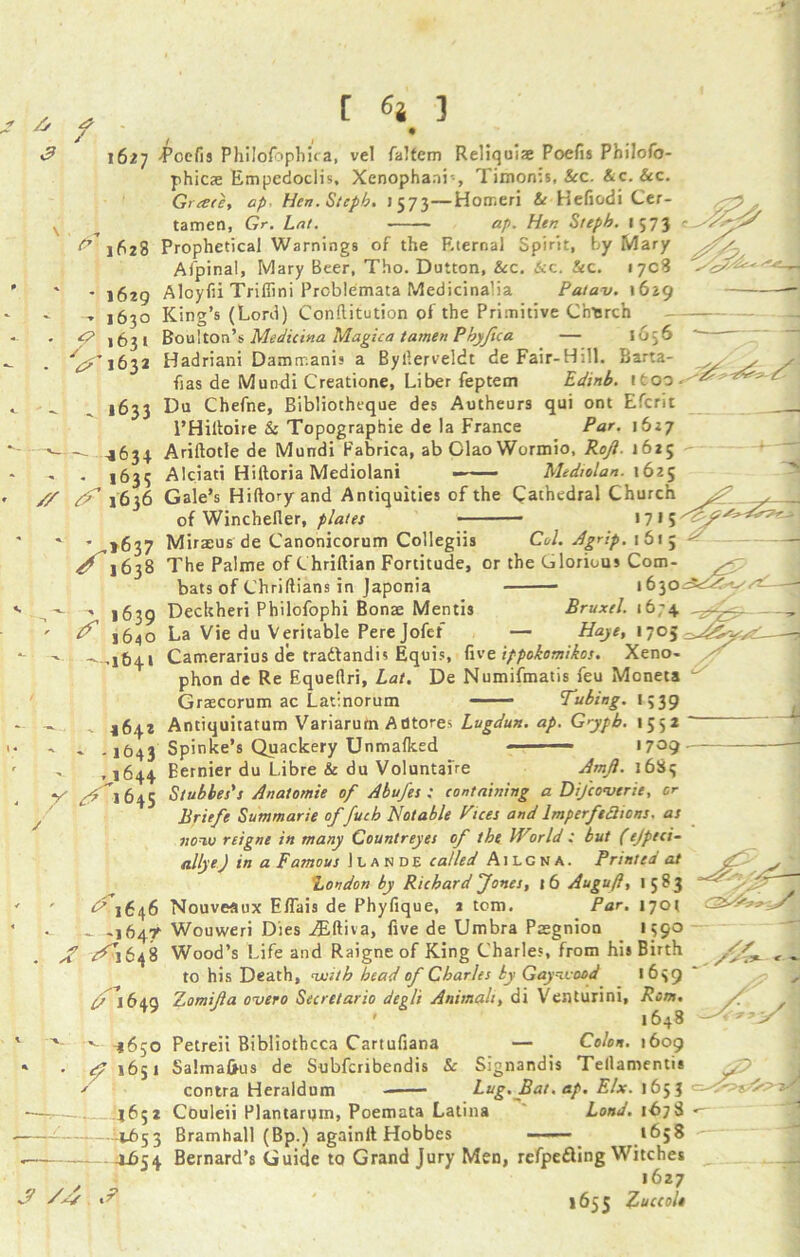 [ 62 ]
1627 Poesis Philosophica, vel saltem Reliquiæ Poesis Philoso-
phicæ Empedoclis, Xenophanis, Timonis, &c. &c. &c.
Græcè, ap. Hen. Steph. 1573—Homeri & Hesiodi Cer-
tamen, Gr. Lat. —— ap. Hen Steph. 1573
1628 Prophetical Warnings of the Eternal Spirit, by Mary
Aspinal, Mary Beer, Tho. Dutton, &c. &c. &c. 1708
1629 Aloysii Trissini Problemata Medicinalia Patav. 1629
1630 King's (Lord) Constitution of the Primitive Church
1631 Boulton's Medicina Magica tamen Physica — 1656
1632 Hadriani Dammanis a Bysterveldt de Fair-Hill. Barta-
sias de Mundi Creatione, Liber septem Edinb. 1600
1633 Du Chesne, Bibliotheque des Autheurs qui ont Escrit
l'Histoire & Topographie de la France Par. 1627
1634 Aristotle de Mundi Fabrica, ab Olao Wormio, Rost. 1625
1635 Alciati Historia Mediolani —— Mediolan. 1625
1636 Gale's History and Antiquities of the Cathedral Church
of Winchester, plates —— 1715
1637 Miræus de Canonicorum Collegiis Col. Agrip. 1615
1638 The Palme of Christian Fortitude, or the Glorious Com-
bats of Christians in Japonia —— 1630
1639 Deckheri Philosophi Bonæ Mentis Bruxel. 1674
1640 La Vie du Veritable Pere Josef — Haye, 1705
1641 Camerarius de tractandis Equis, five ippokomikos. Xeno-
phon de Re Equestri, Lat. De Numismatis seu Moneta
Græcorum ac Latinorum —— Tubing. 1539
1642 Antiquitatum Variarum Autores Lugdun. ap. Gryph. 1552
1643 Spinke's Quackery Unmasked —— 1709
1644 Bernier du Libre & du Voluntaire Amst. 1685
1645 Stubbes's Anatomie of Abuses: containing a Discoverie, or
Briefe Summarie of such Notable Vices and Imperfections, as
now reigne in many Countreyes of the World: but (especi-
allye) in a Famous ILANDE called AILGNA. Printed at
London by Richard Jones, 16 August, 1583
1646 Nouveaux Essais de Physique, 2 tom. Par. 1701
1647 Wouweri Dies Æstiva, five de Umbra Pægnion 1590
1648 Wood's Life and Raigne of King Charles, from his Birth
to his Death, with head of Charles by Gaywood 1659
1649 Zomista overo Secretario degli Animali, di Venturini, Rom.
1648
1650 Petreii Bibliotheca Cartusiana — Colon. 1609
1651 Salmasius de Subscribendis & Signandis Testamentis
contra Heraldum —— Lug. Bat. ap. Elx. 1653
1652 Couleii Plantarum, Poemata Latina Lond. 1678
1653 Bramhall (Bp.) against Hobbes —— 1658
1654 Bernard's Guide to Grand Jury Men, respecting Witches
1627
1655 Zuccole